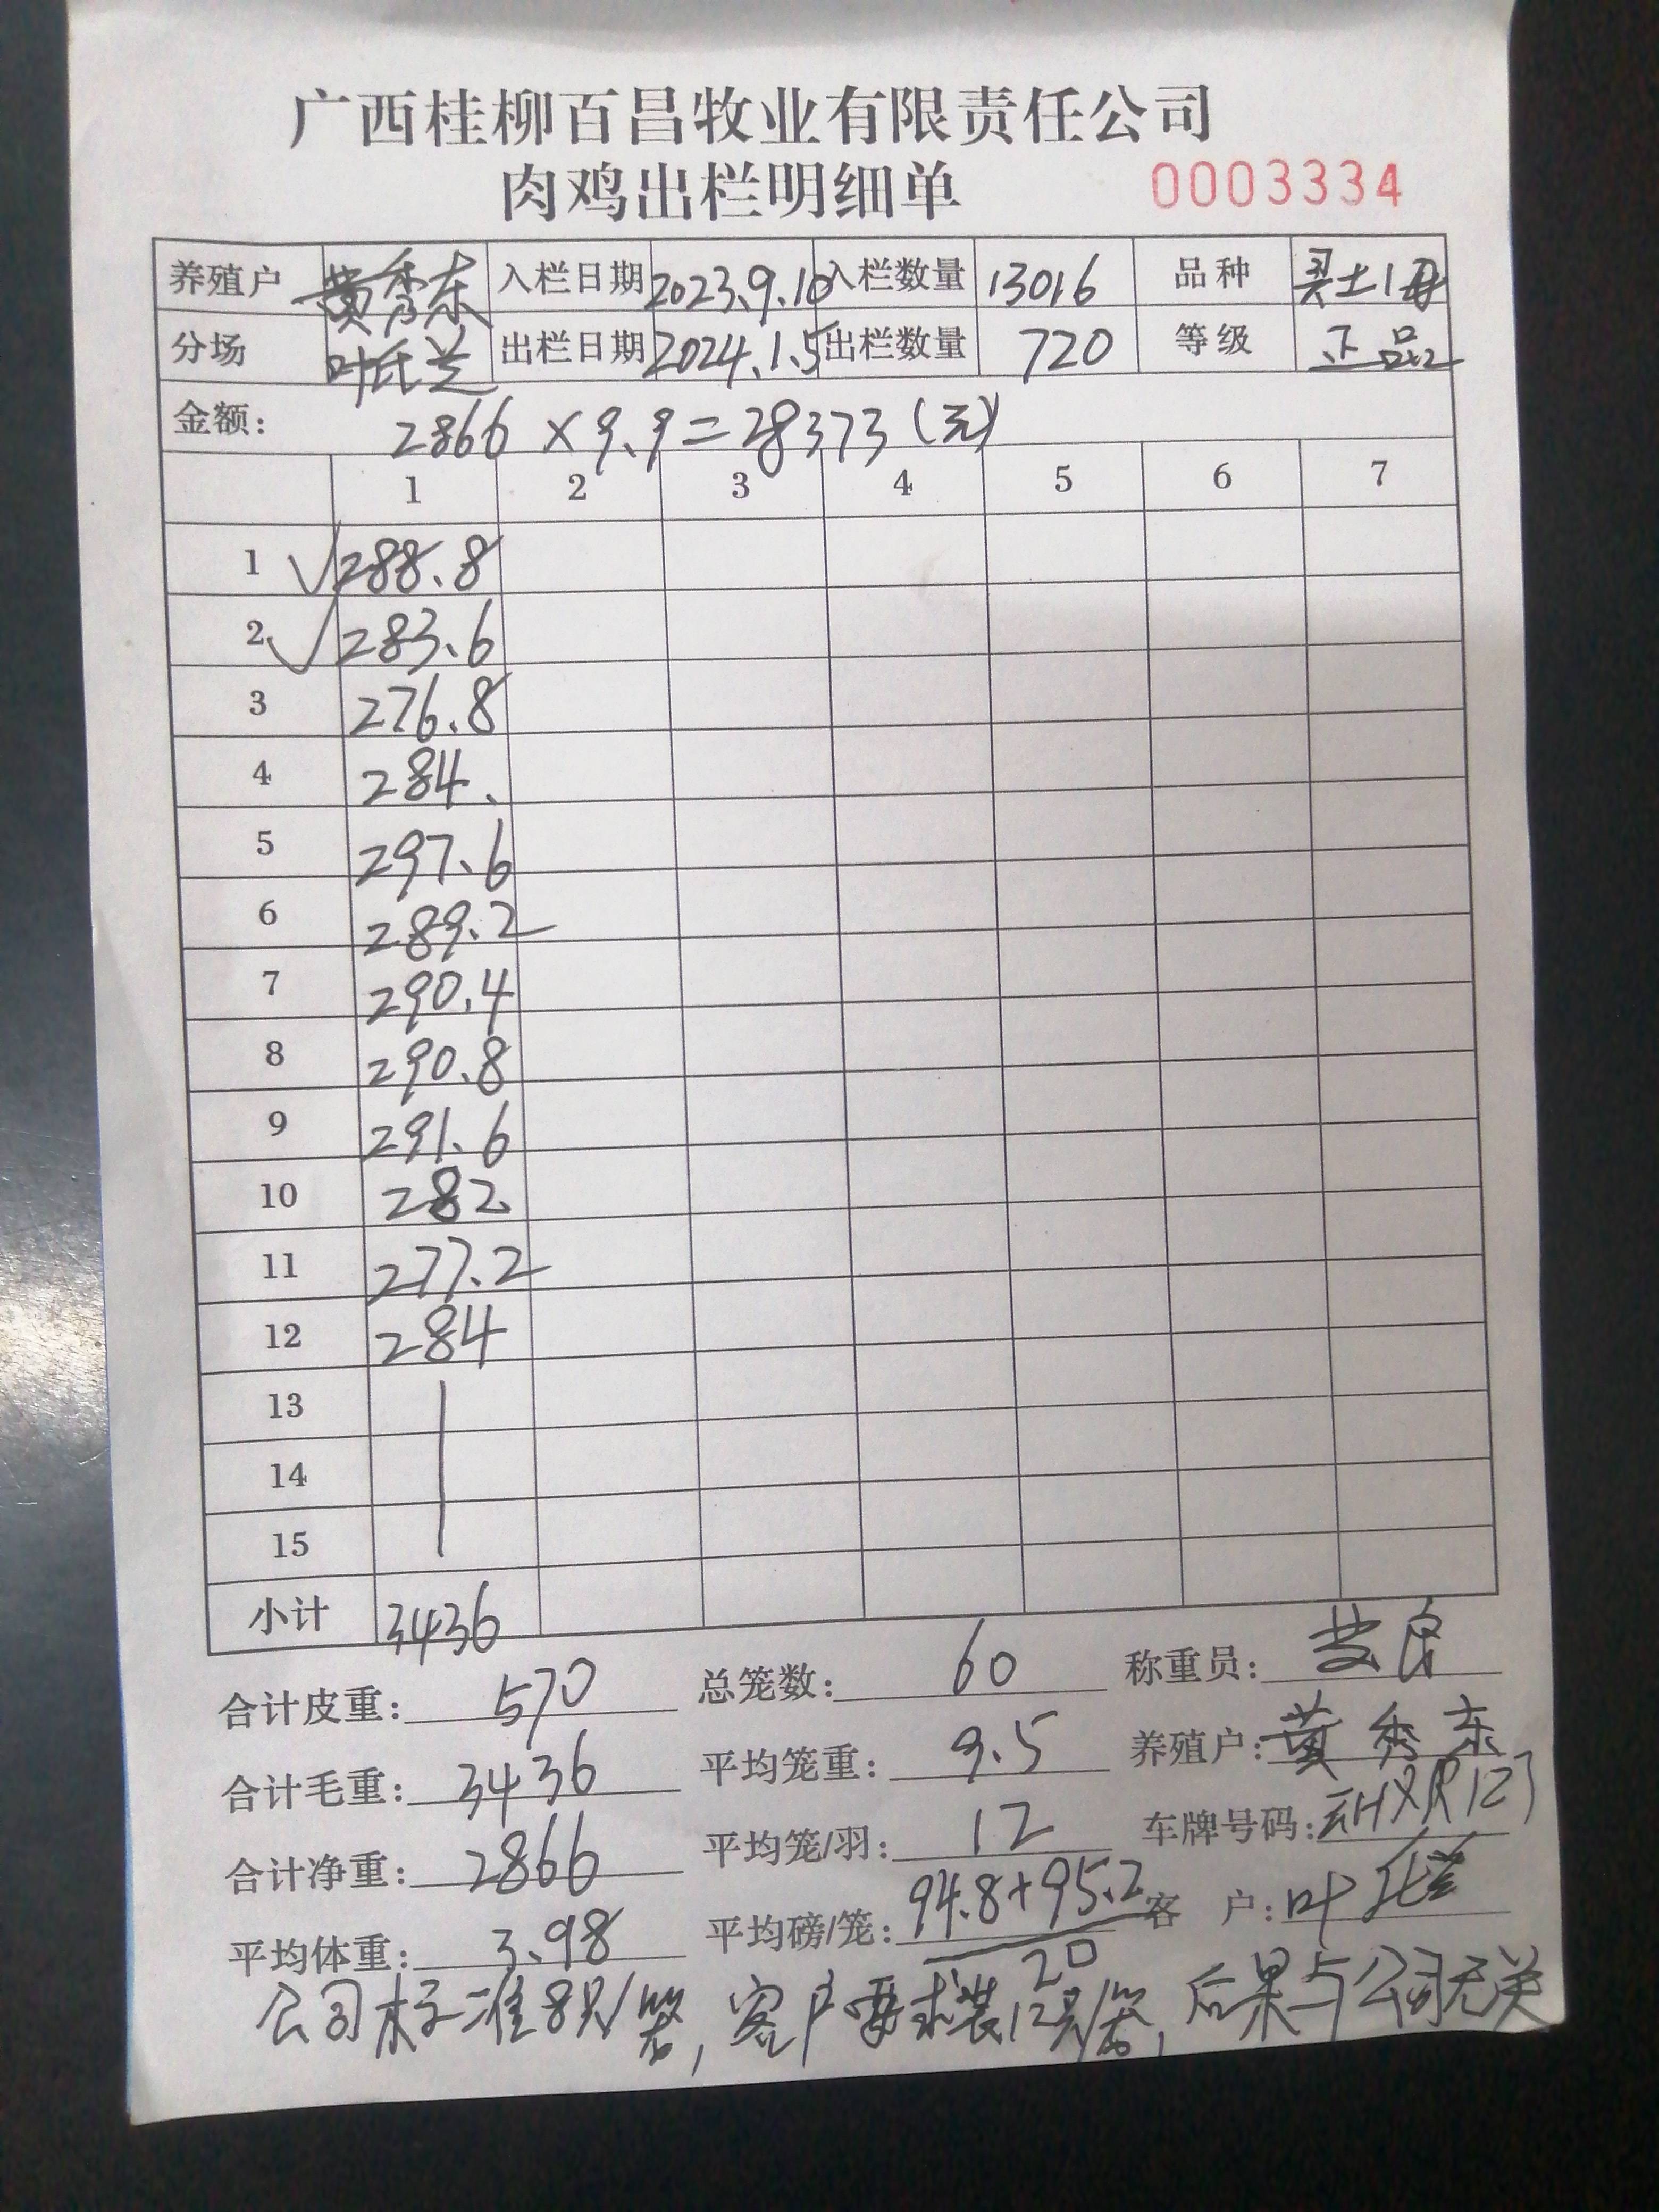 广西桂柳百昌牧业有限责任公司
肉鸡出栏明细单 0003334
养殖户 黄秀东 入栏日期 2023.9.10 入栏数量 13016 品种 土1母
分场 叶 出栏日期 2024.1.5 出栏数量 720 等级 正品
金额: 2866 × 9.9 = 28373 (元)
1 2 3 4 5 6 7
1 √ 288.8
2 √ 283.6
3 276.8
4 284.
5 297.6
6 289.2
7 290.4
8 290.8
9 291.6
10 282.
11 277.2
12 284
13
14
15
小计 3436
合计皮重: 570 总笼数: 60 称重员:
合计毛重: 3436 平均笼重: 9.5 养殖户: 黄秀东
合计净重: 2866 平均笼/羽: 12 车牌号码:
平均体重: 3.98 平均磅/笼: 94.8+95.2 客 户: 叶
20
公司标准8只/笼, 客户要求装12只/笼, 后果与公司无关